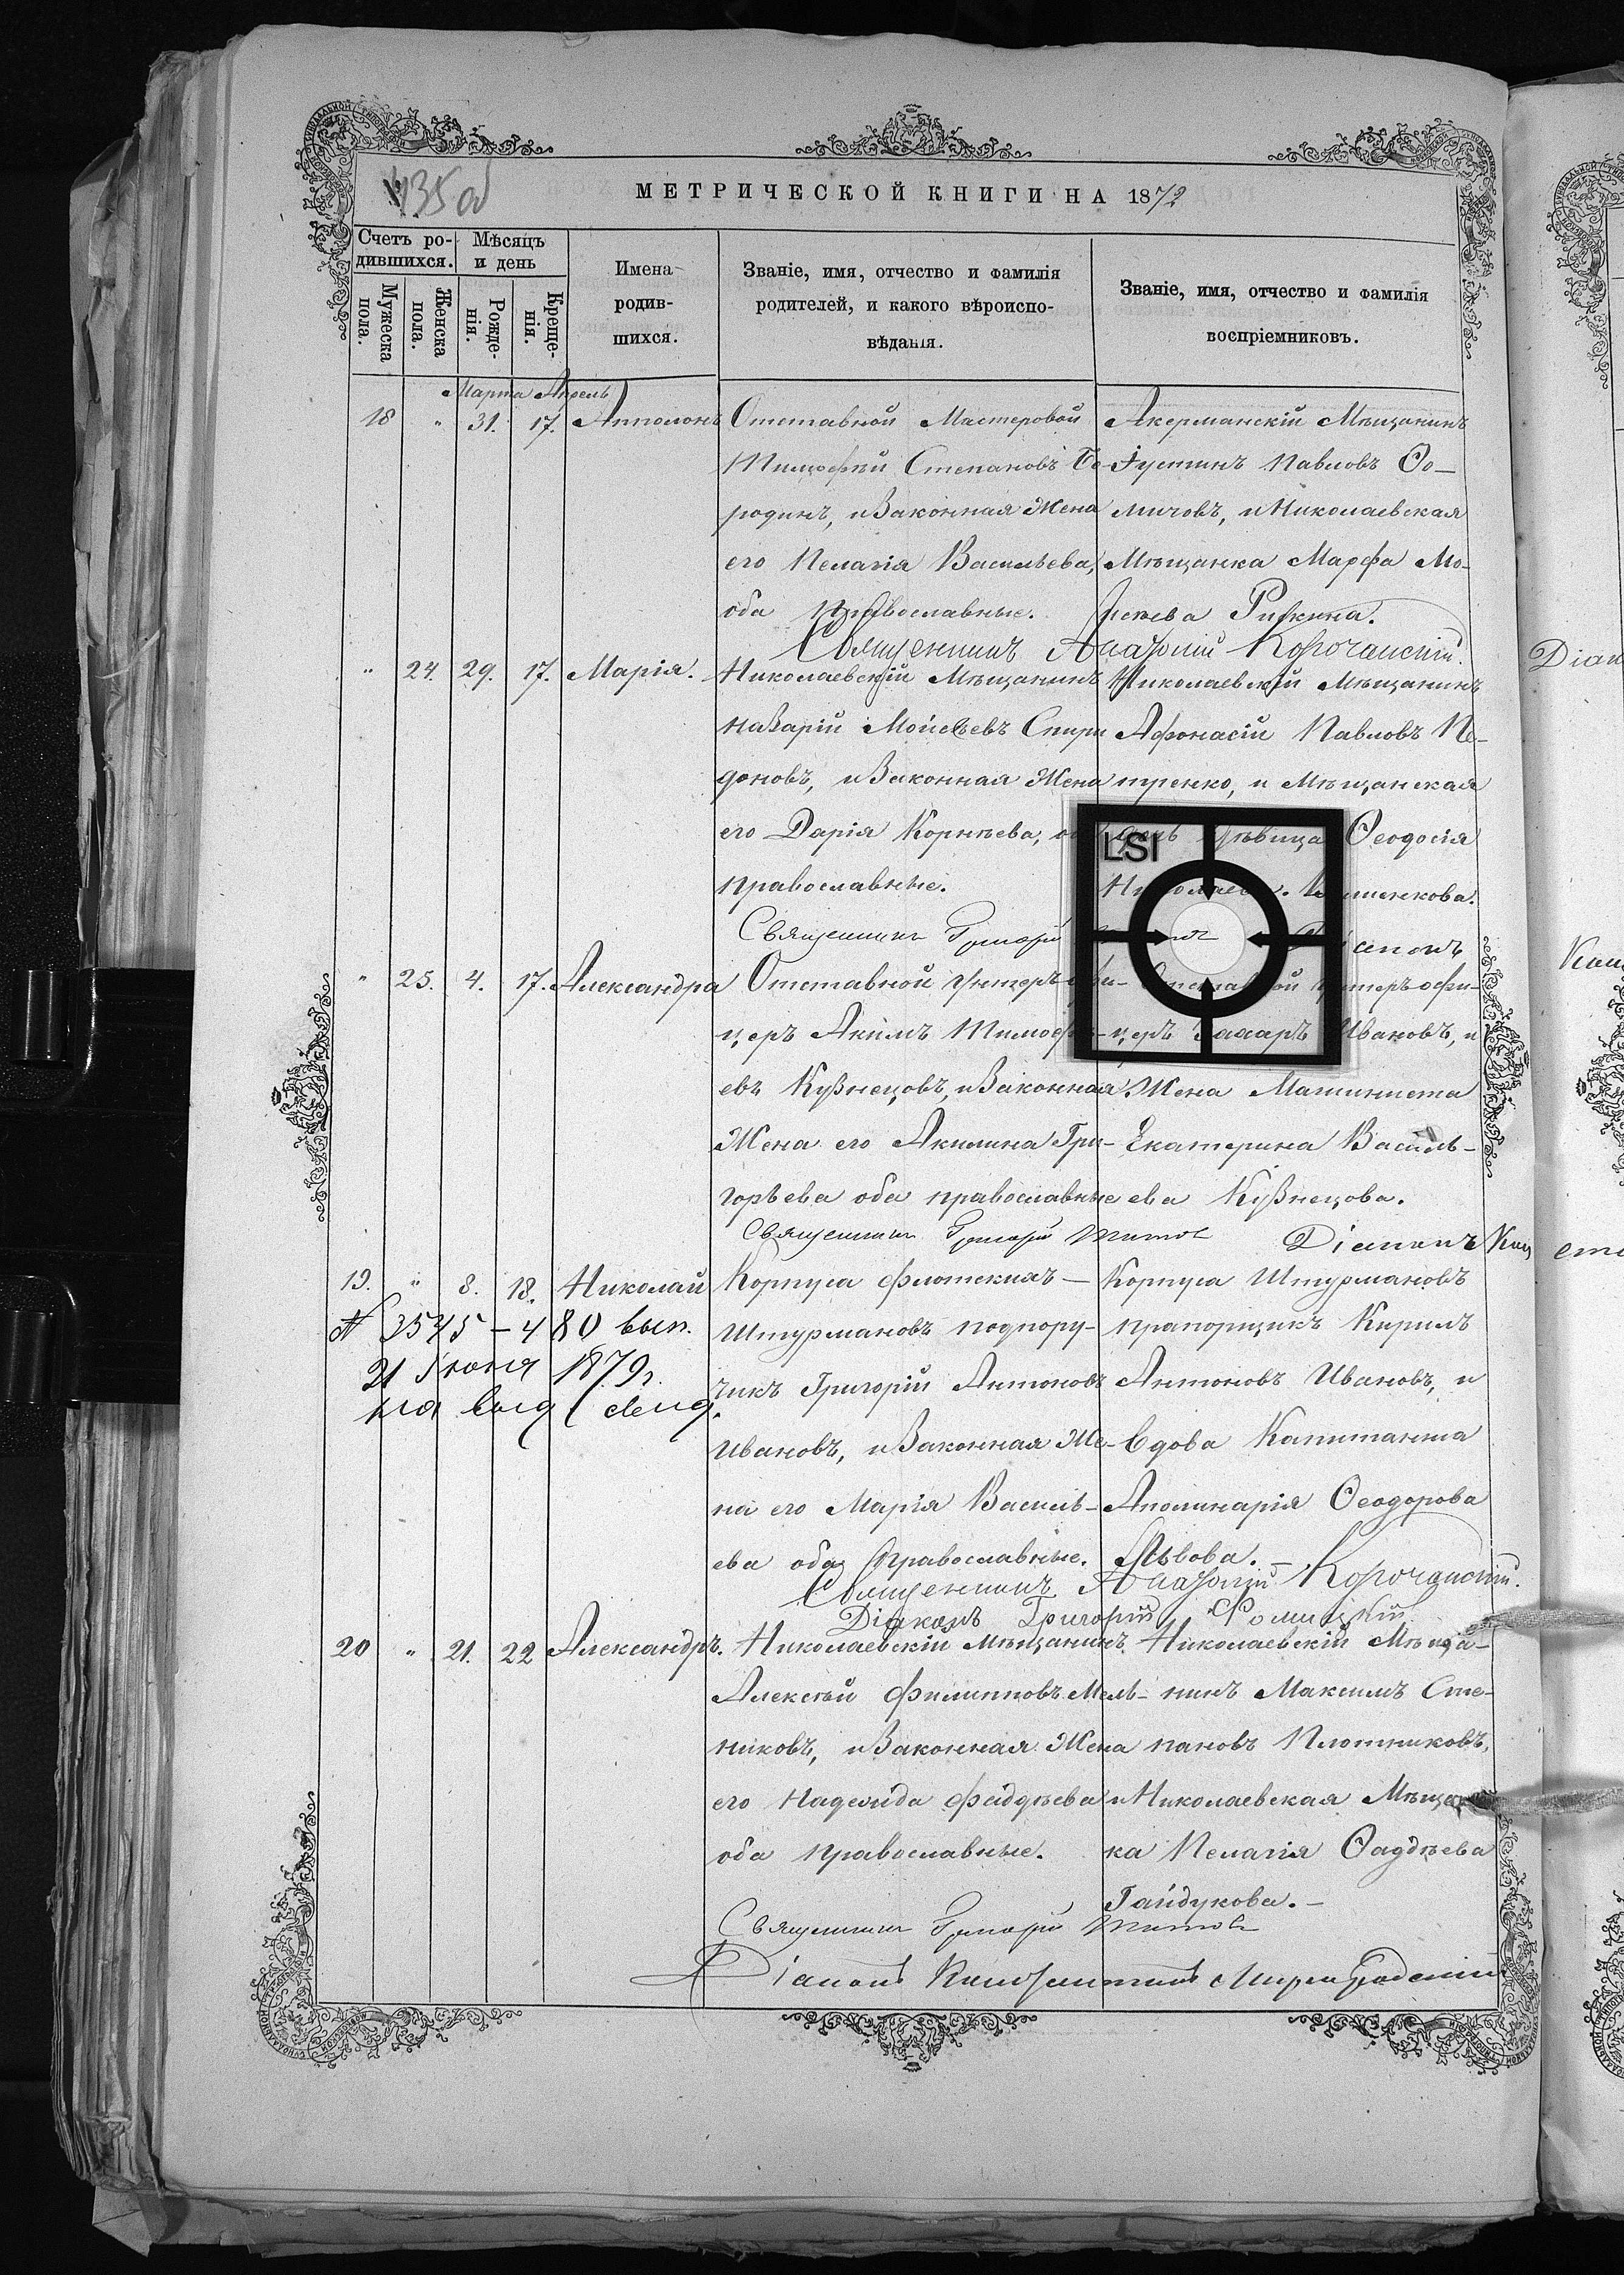 МЕТРИЧЕСКОЙ КНИГИ НА 1872
Счетъ ро-
дившихся.
Мѣсяцъ
и день
Мужеска
пола.
Женска
пола.
Рожде-
нія.
Креще-
нія.
Имена
родив-
шихся.
Званіе, имя, отчество и фамилія
родителей, и какого вѣроиспо-
вѣданія.
Званіе, имя, отчество и фамилія
воспріемниковъ.
Марта Апрель
18 " 31. 17. Апполонъ
Отставной Мастеровой
Тимофей Степановъ Бо-
родинъ, и Законная Жена
его Пелагія Васильева,
оба православные.
Акерманскій Мѣщанинъ
Іустинъ Павловъ Ѳо-
мичовъ, и Николаевская
Мѣщанка Марфа Мо-
исѣева
Священникъ Корочанскій.
" 24. 29. 17. Марія.
Николаевскій Мѣщанинъ
Назарій Мойсеевъ Спири
доновъ, и Законная Жена
его Дарія Корнѣева,
православные.
Николаевскій Мѣщанинъ
Афонасій Павловъ Пе-
тренко, и Мѣщанская
дочь дѣвица Ѳеодосія
Священникъ Григорій
" 25. 4. 17. Александра
Отставной Унтеръ офи-
церъ Акимъ Тимофѣ-
евъ Кузнецовъ, и Законная
Жена его Акилина Гри-
горьева оба православные
Отставной Унтеръ офи-
церъ Захаръ Ивановъ, и
Жена Машиниста
Екатерина Василь-
ева Кузнецова.
Священникъ Григорій Титовъ Діаконъ
19. " 8. 18. Николай
№ 3545 – 480 вып.
21 Іюня 1879г.
Корпуса флотскихъ
Штурмановъ подпору-
чикъ Григорій Антоновъ
Ивановъ, и Законная Же-
на его Марія Василь-
ева оба православные.
Корпуса Штурмановъ
прапорщикъ Кирилъ
Антоновъ Ивановъ, и
Вдова Капитанта
Аполинарія Ѳеодорова
Львова.
Священникъ Корочанскій.
Діаконъ Григорій
20 " 21. 22 Александръ.
Николаевскій мѣщанинъ
Алексѣй Филипповъ Мель-
никовъ, и Законная Жена
его Надежда Фаддѣева
оба православные.
Николаевскій Мѣща-
нинъ Максимъ Сте-
пановъ Плотниковъ,
и Николаевская Мѣщан
ка Пелагія Ѳаддѣева
Гайдукова.
Священникъ Григорій Титовъ
Діаконъ Константинъ
LSI